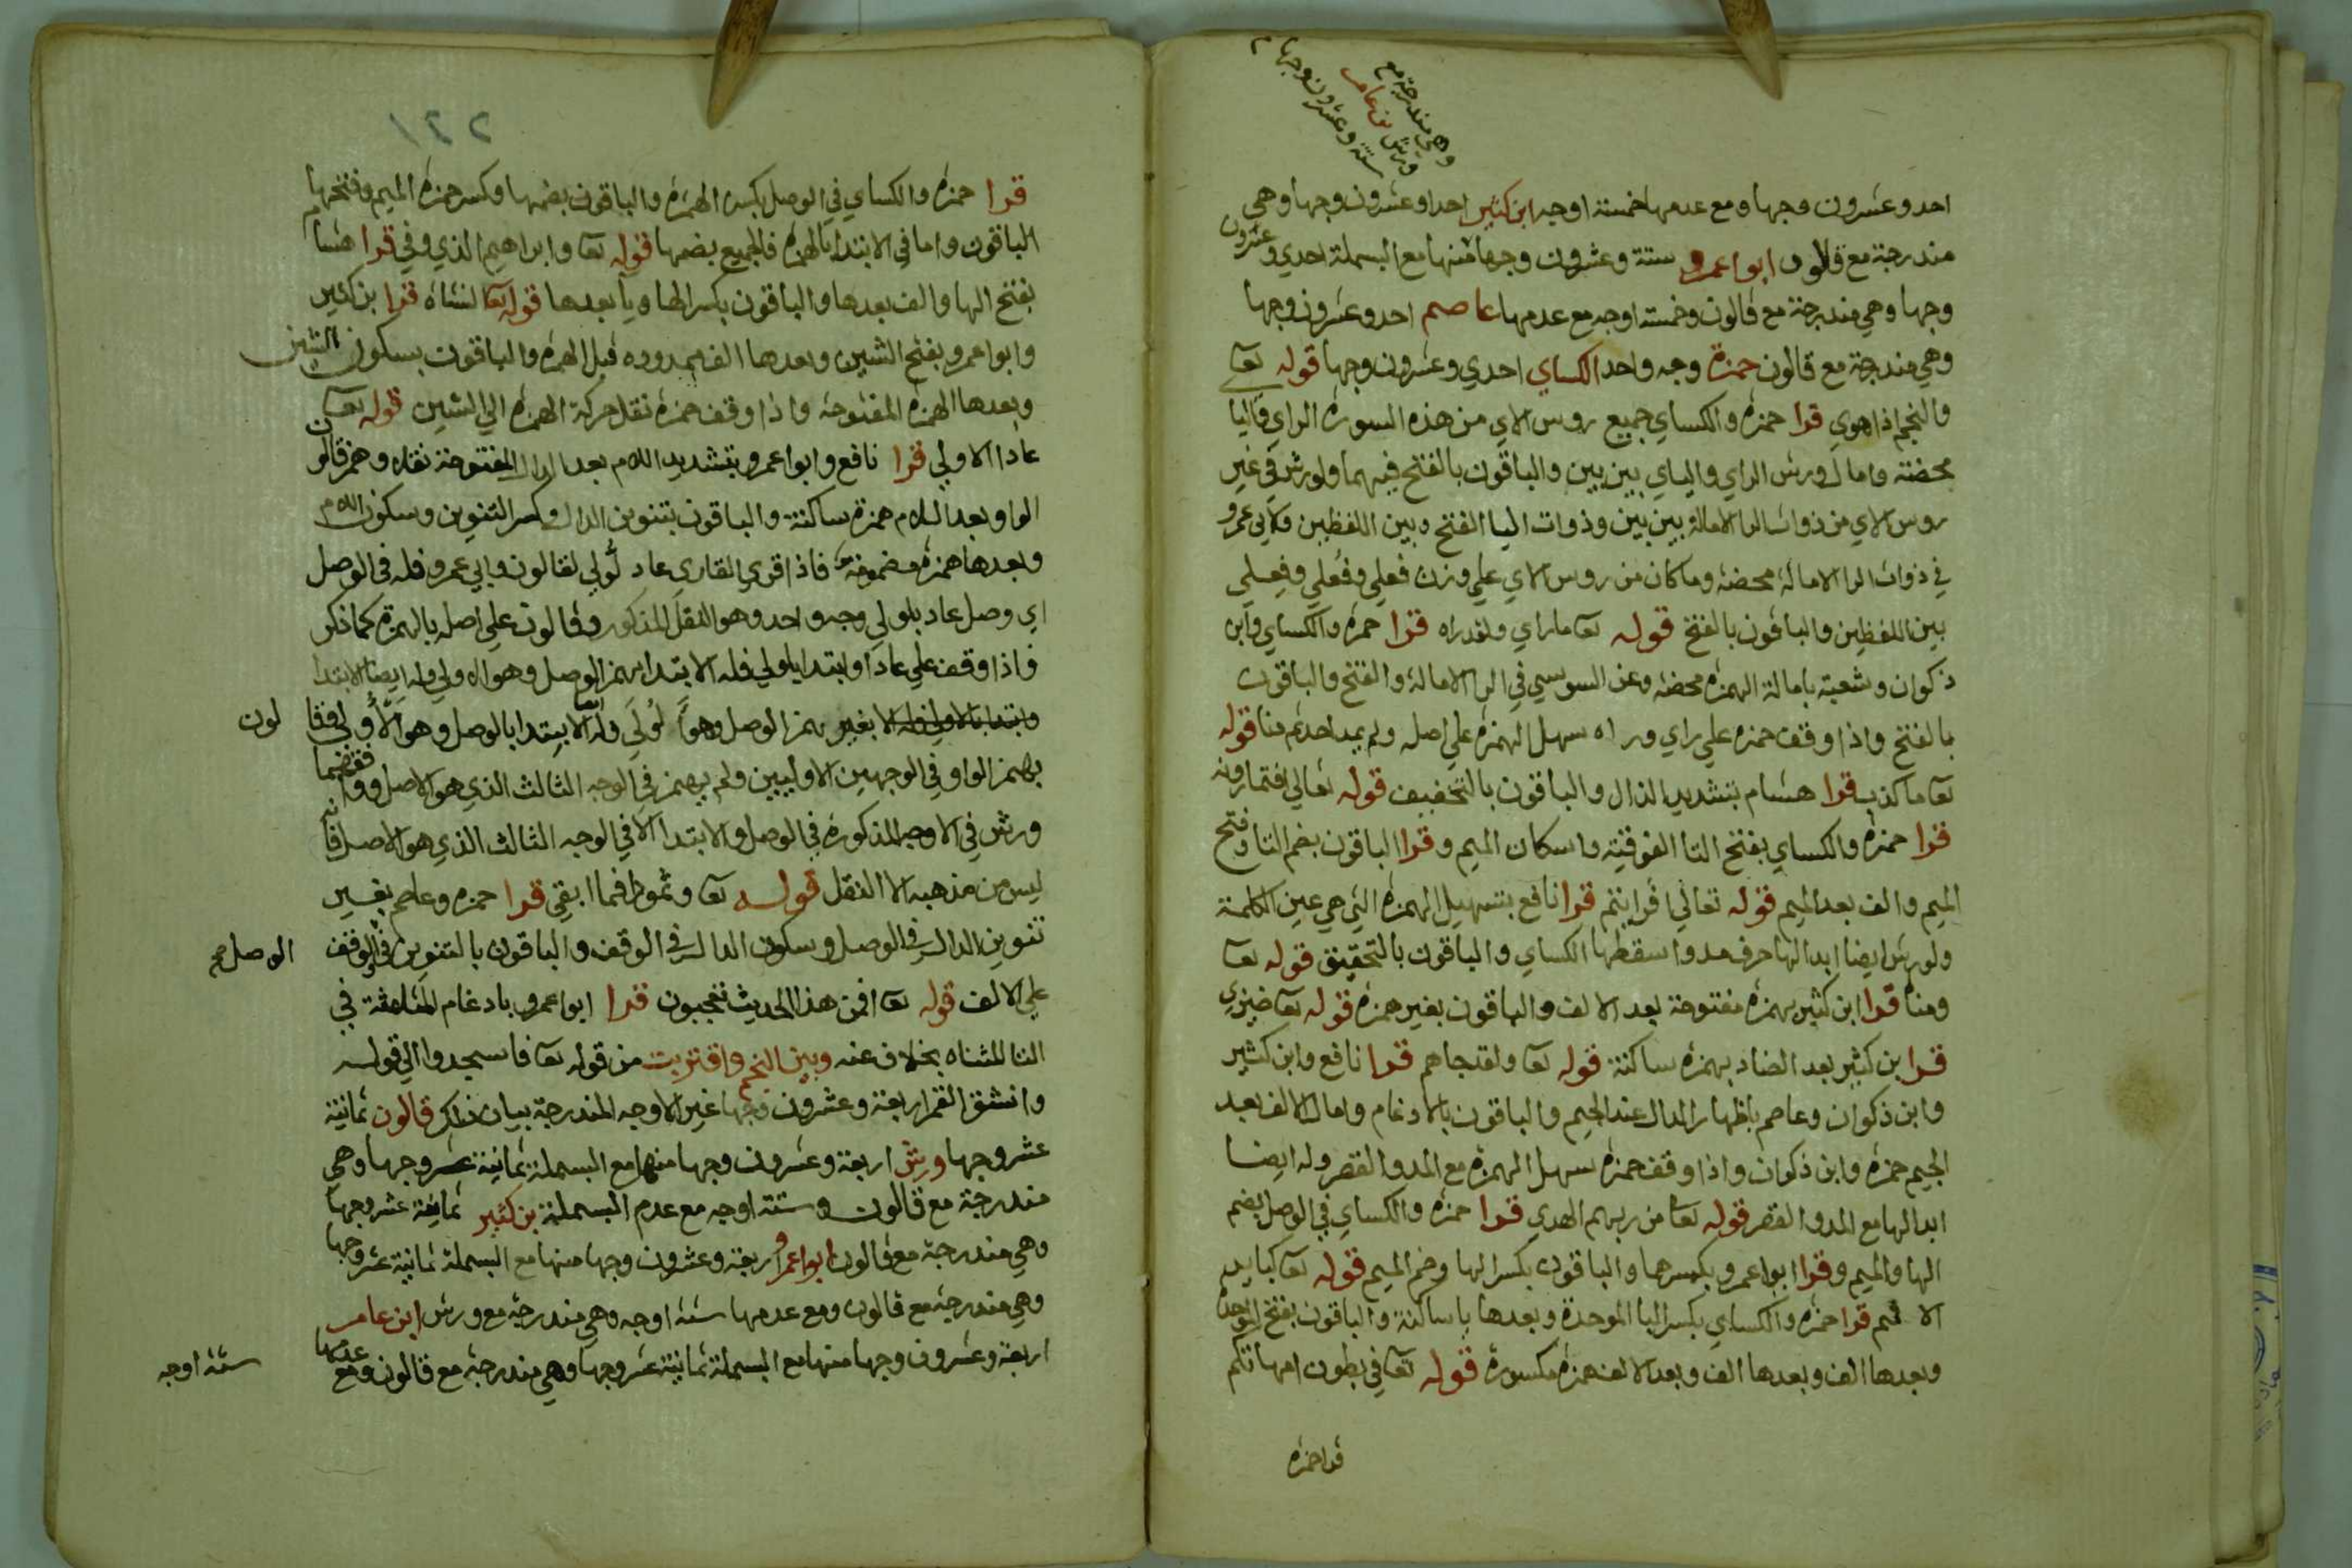 وهي مندرجة مع
ورش بن عامر
ستة وعشرون وجها
احد وعشرون وجها ومع عدمها خمسة اوجه ابن كثير احد وعشرون وجها وهي
مندرجة مع قالون ابو اعمرو ستة وعشرون وجها منها مع البسملة احدي وعشرون
وجها وهي مندرجة مع قالون وخمسة اوجه مع عدمها عاصم احد وعشرون وجها
وهي مندرجة مع قالون حمزة وجه واحد الكساي احدي وعشرون وجها قوله تعا
والنجم اذا هوي قرا حمزه والكساي جميع روس الاي من هذه السوره الراي واليا
محضة وامال ورش الراي والياي بين بين والباقون بالفتح فيهما ولورش في غير
روس الاي من ذوات الرا الامالة بين بين وذوات اليا الفتح وبين اللفظين ولابي عمرو
في ذوات الرا الامالة محضه وما كان من روس الاي علي وزن فعلي وفعلي وفعلي
بين اللفظين والباقون بالفتح قوله تعا ماراي ولقد راه قرا حمزه والكساي وابن
ذكوان وشعبة بامالة الهمزه محضه وعن السوسي في الرا الامالة والفتح والباقون
بالفتح واذا وقف حمزه علي راي وراه سهل الهمزه علي اصله ولم يمد احد هنا قوله
تعا ما كذب قرا هشام بتشديد الذال والباقون بالتخفيف قوله تعالي افتمارونه
قرا حمزه والكساي بفتح التا الفوقيه واسكان الميم وقرا الباقون بضم التا وفتح
الميم والف بعد الميم قوله تعالي افرايتم قرا نافع بتسهيل الهمزه التي هي عين الكلمة
ولورش ايضا ابدالها حرف مد واسقطها الكساي والباقون بالتحقيق قوله تعا
ومناة قرا ابن كثير بهمزه مفتوحة بعد الالف والباقون بغير همزه قوله تعا ضيزي
قرا بن كثير بعد الضاد بهمزه ساكنة قوله تعا ولقد جاهم قرا نافع وابن كثير
وابن ذكوان وعاصم باظهار الدال عند الجيم والباقون بالادغام وامال الالف بعد
الجيم حمزه وابن ذكوان واذا وقف حمزه سهل الهمزة مع المد والقصر وله ايضا
ابدالها مع المد والقصر قوله تعا من ربهم الهدي قرا حمزه والكساي في الوصل بضم
الها والميم وقرا ابو اعمرو بكسرهما والباقون بكسر الها وضم الميم قوله تعا كباير
الاثم قرا حمزه والكساي بكسر البا الموحدة وبعدها يا ساكنة والباقون بفتح الموحدة
وبعدها الف وبعدها الف وبعد الالف همزه مكسورة قوله تعا في بطون امهاتكم
قرا حمزه
قرا حمزه والكساي في الوصل بكسر الهمزه والباقون بضمها وكسر حمزه الميم وفتحها
الباقون واما في الابتدا بالهمزه فالجميع بضمها قوله تعا وابراهيم الذي وفي قرا هشام
بفتح الها والف بعدها والباقون بكسر الها ويا بعدها قوله تعا النشاه قرا بن كثير
وابو اعمرو بفتح الشين وبعدها الف ممدوده قبل الهمزه والباقون بسكون الشين
وبعدها الهمزه المفتوحة واذا وقف حمزه نقل حركة الهمزه الي الشين قوله تعا
عادا الاولي قرا نافع وابو اعمرو بتشديد اللام بعد الدال المفتوحة نقلا وهمز قالون
الواو بعد اللام همزة ساكنة والباقون بتنوين الدال وكسر التنوين وسكون اللام
وبعدها همزه مضمومة فاذا قري القاري عاد لولي لقالون وابي عمرو فله في الوصل
اي وصل عاد بلولي وجه واحد وهو النقل المذكور وقالون علي اصله بالهمزة كما ذكر
فاذا وقف علي عادا وابتدا بلولي فله الابتدا بهمز الوصل وهو الولي وله ايضا الابتدا
بغير همز الوصل وهو لولي وله الابتدا بالوصل وهو الاولي وقالون
بهمز الواو في الوجهين الاولييين ولم يهمز في الوجه الثالث الذي هو الاصل ووافقهما
ورش في الاوجه المذكوره في الوصل والابتدا الا في الوجه الثالث الذي هو الاصل فانه
ليس من مذهبه الا النقل قوله تعا وثمودا فما ابقي قرا حمزه وعاصم بغير
تنوين الدال في الوصل وسكون الدال في الوقف والباقون بالتنوين في الوصل والوقف
علي الالف قوله تعا افمن هذا الحديث تعجبون قرا ابو اعمرو بادغام المثلثة في
التا المثناه بخلاف عنه وبين النجم واقتربت من قوله تعا فاسجدوا الي قوله
وانشق القمر اربعة وعشرون وجها غير الاوجه المندرجة بيان ذلك قالون ثمانية
عشر وجها ورش اربعة وعشرون وجها منها مع البسملة ثمانية عشر وجها وهي
مندرجة مع قالون وستة اوجه مع عدم البسملة بن كثير ثمانية عشر وجها
وهي مندرجة مع قالون ابو اعمرو اربعة وعشرون وجها منها مع البسملة ثمانية عشر وجها
وهي مندرجة مع قالون ومع عدمها ستة اوجه وهي مندرجة مع ورش ابن عامر
اربعة وعشرون وجها منها مع البسملة ثمانية عشر وجها وهي مندرجة مع قالون ومع عدمها ستة اوجه